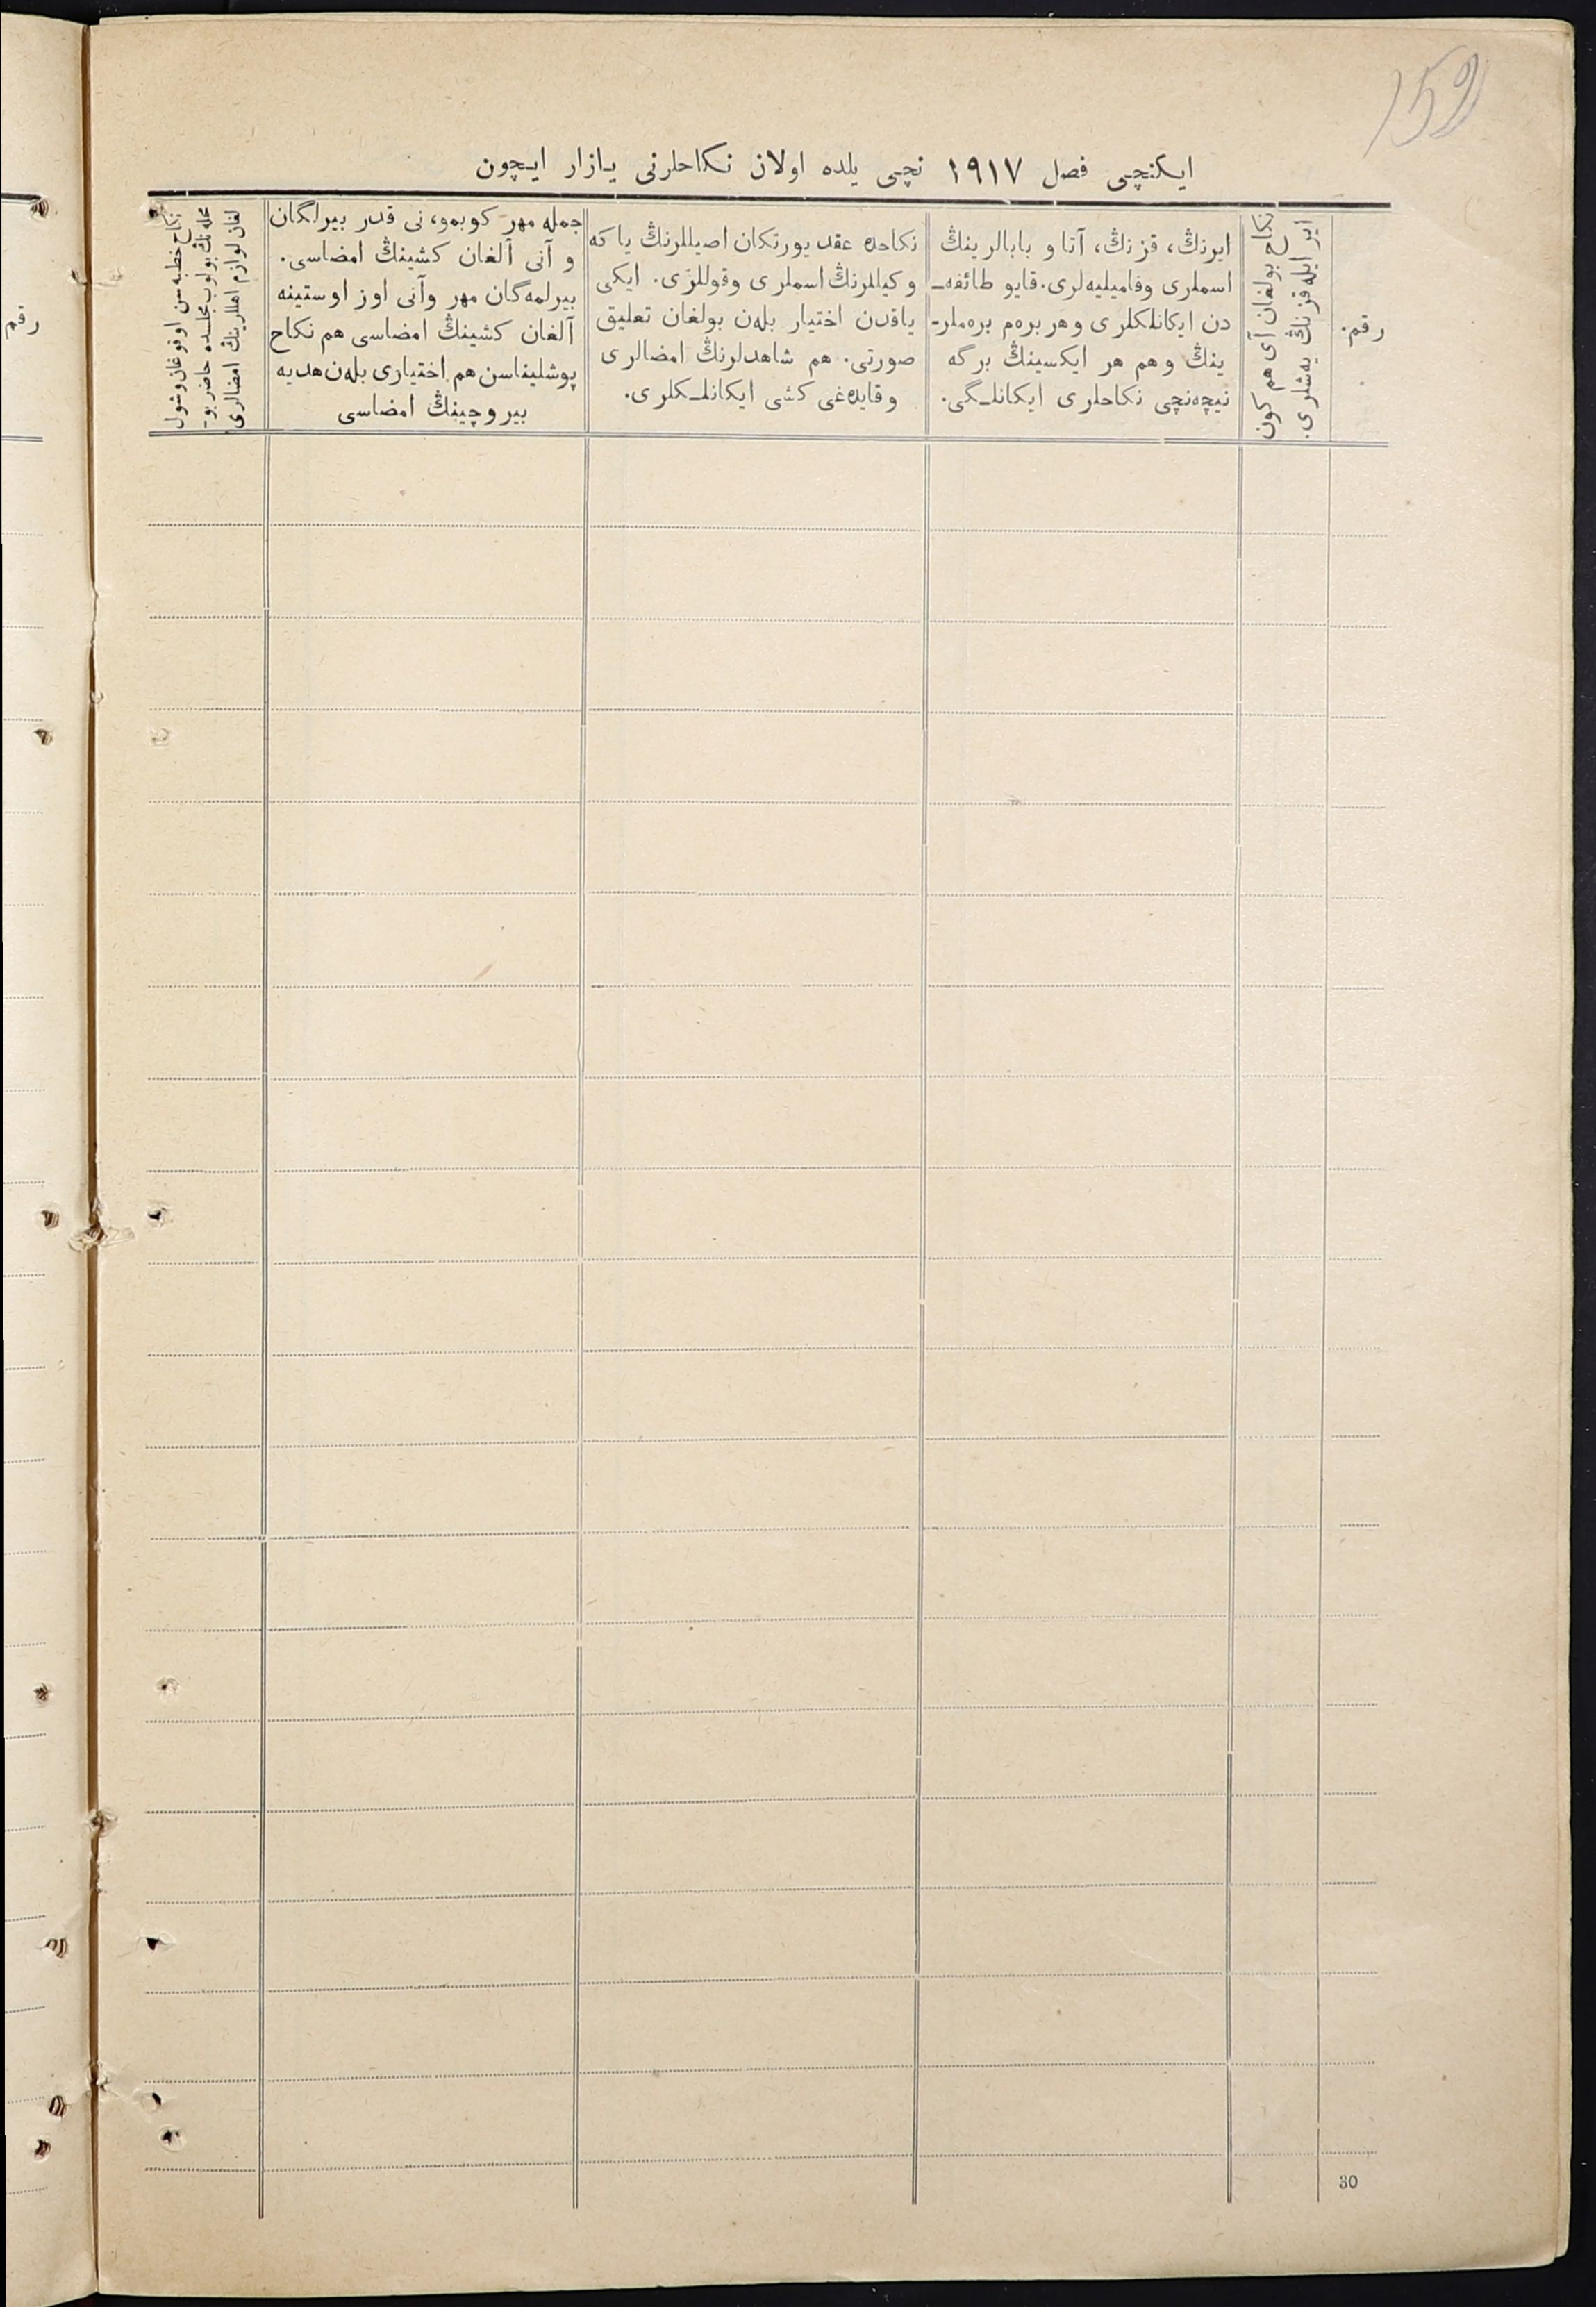 159
ایکنچی فصل ١٩١٧ نچی یلده اولان نکاحلرنی یازار ایچون
رقم.
نکاح بولغان آی هم کون
ایر ایله قزنڭ یەشلری.
ایرنڭ، قزنڭ، آتا و بابالرینڭ
اسملری وفامیلیەلری. قایو طائفه‌ـ
دن ایکانلکلری وهر برەم برەملر-
ینڭ وهم هر ایکسینڭ برگه
نیچەنچی نکاحلری ایکانلـگی.
نکاحده عقد یورتکان اصیللرنڭ یا که
وکیللرنڭ اسملری وقوللری. ایکی
یاقدن اختیار بلەن بولغان تعلیق
صورتی. هم شاهدلرنڭ امضالری
وقایدەغی کشی ایکانلـکلری.
جمله مهر کوبمو، نی قدر بیرلگان
و آنی آلغان کشینڭ امضاسی.
بیرلمەگان مهر وآنی اوز اوستینه
آلغان کشینڭ امضاسی هم نکاح
پوشلیناسن هم اختیاری بلەن هدیه
بیروچینڭ امضاسی
نکاح خطبه‌سن اوقوغان وشول
محلەنڭ بولوب مجلسده حاضر بو-
لغان لوازم اهللرینڭ امضالری
رقم
30